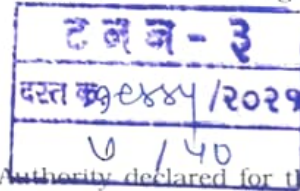 ट न न - ३
दस्त क्र १४४५ /२०२१
७ / ५०
Authority declared for th